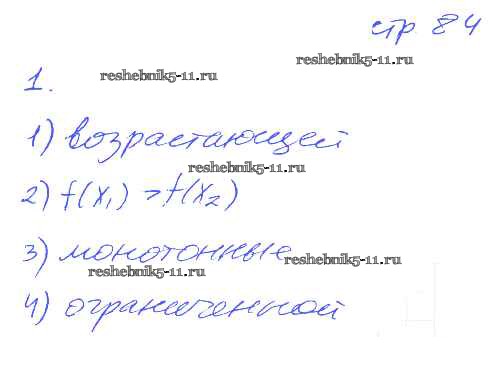 стр 84
reshebnik5-11.ru
1.
reshebnik5-11.ru
1) возрастающей
reshebnik5-11.ru
2) f(x₁) > f(x₂)
3) монотонные
reshebnik5-11.ru
reshebnik5-11.ru
4) ограниченной